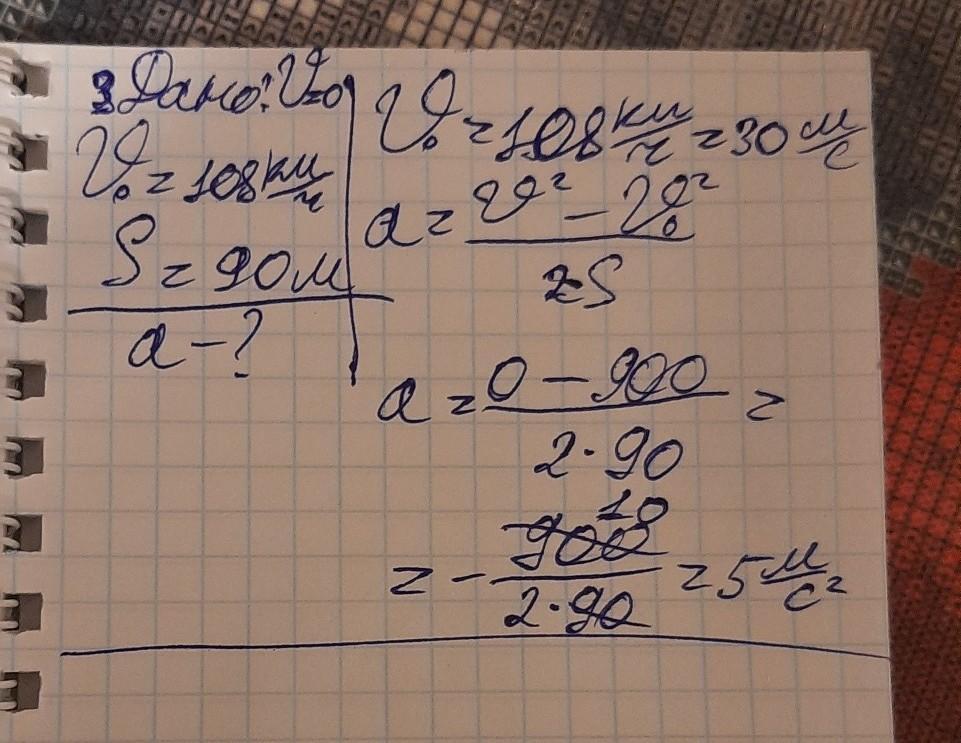 3 Дано: V=0
V₀ = 108 км/ч
S = 90 м
a - ?
V₀ = 108 км/ч = 30 м/с
a = (V² - V₀²)/(2S)
a = (0 - 900)/(2·90) =
10
= - 900/(2·90) = 5 м/с²